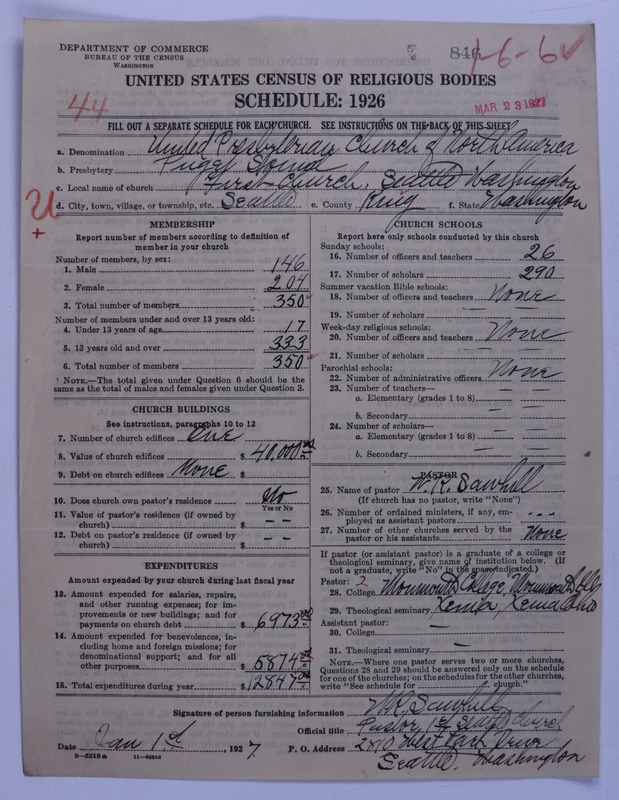 DEPARTMENT OF COMMERCE
BUREAU OF THE CENSUS
WASHINGTON
846
1-6-6
UNITED STATES CENSUS OF RELIGIOUS BODIES
SCHEDULE: 1926
44
MAR 23 1927
FILL OUT A SEPARATE SCHEDULE FOR EACH CHURCH. SEE INSTRUCTIONS ON THE BACK OF THIS SHEET
a. Denomination United Presbyterian Church of North America
b. Presbytery Puget Sound
c. Local name of church First Church, Seattle Washington
d. City, town, village, or township, etc. Seattle e. County King f. State Washington
U
+
MEMBERSHIP
Report number of members according to definition of
member in your church
Number of members, by sex:
1. Male 146
2. Female 204
3. Total number of members 350
Number of members under and over 13 years old:
4. Under 13 years of age 17
5. 13 years old and over 333
6. Total number of members 350
NOTE.—The total given under Question 6 should be
same as the total of males and females given under Question 3.
CHURCH BUILDINGS
See instructions, paragraphs 10 to 12
7. Number of church edifices One
8. Value of church edifices $ 40,000
9. Debt on church edifices None $
10. Does church own pastor's residence No
Yes or No
11. Value of pastor's residence (if owned by
church) $ – –
12. Debt on pastor's residence (if owned by
church) $ – –
EXPENDITURES
Amount expended by your church during last fiscal year
13. Amount expended for salaries, repairs,
and other running expenses; for im-
provements or new buildings; and for
payments on church debt $ 6973
14. Amount expended for benevolences, in-
cluding home and foreign missions; for
denominational support; and for all
other purposes $ 5874
15. Total expenditures during year $ 12847
CHURCH SCHOOLS
Report here only schools conducted by this church
Sunday schools:
16. Number of officers and teachers 26
17. Number of scholars 290
Summer vacation Bible schools:
18. Number of officers and teachers None
19. Number of scholars — —
Week-day religious schools:
20. Number of officers and teachers None
21. Number of scholars — —
Parochial schools:
22. Number of administrative officers None
23. Number of teachers—
a. Elementary (grades 1 to 8) — —
b. Secondary — —
24. Number of scholars—
a. Elementary (grades 1 to 8) — —
b. Secondary — —
PASTOR
25. Name of pastor W. K. Sawhill
(If church has no pastor, write "None")
26. Number of ordained ministers, if any, em-
ployed as assistant pastors - - -
27. Number of other churches served by the
pastor or his assistants None
If pastor (or assistant pastor) is a graduate of a college or
theological seminary, give name of institution below. (If
not a graduate, write "No" in the space indicated.)
Pastor: 2
28. College Monmouth College, Monmouth Ills
29. Theological seminary Xenia, Xenia Ohio
Assistant pastor:
30. College —
31. Theological seminary —
NOTE.—Where one pastor serves two or more churches,
Questions 28 and 29 should be answered only on the schedule
for one of the churches; on the schedules for the other churches,
write "See schedule for church."
Signature of person furnishing information W.K. Sawhill
Official title Pastor, 1st Church
Date Jan 1st, 1927. P. O. Address 2810 West Park Drive
Seattle, Washington
8—5518a 11—90846